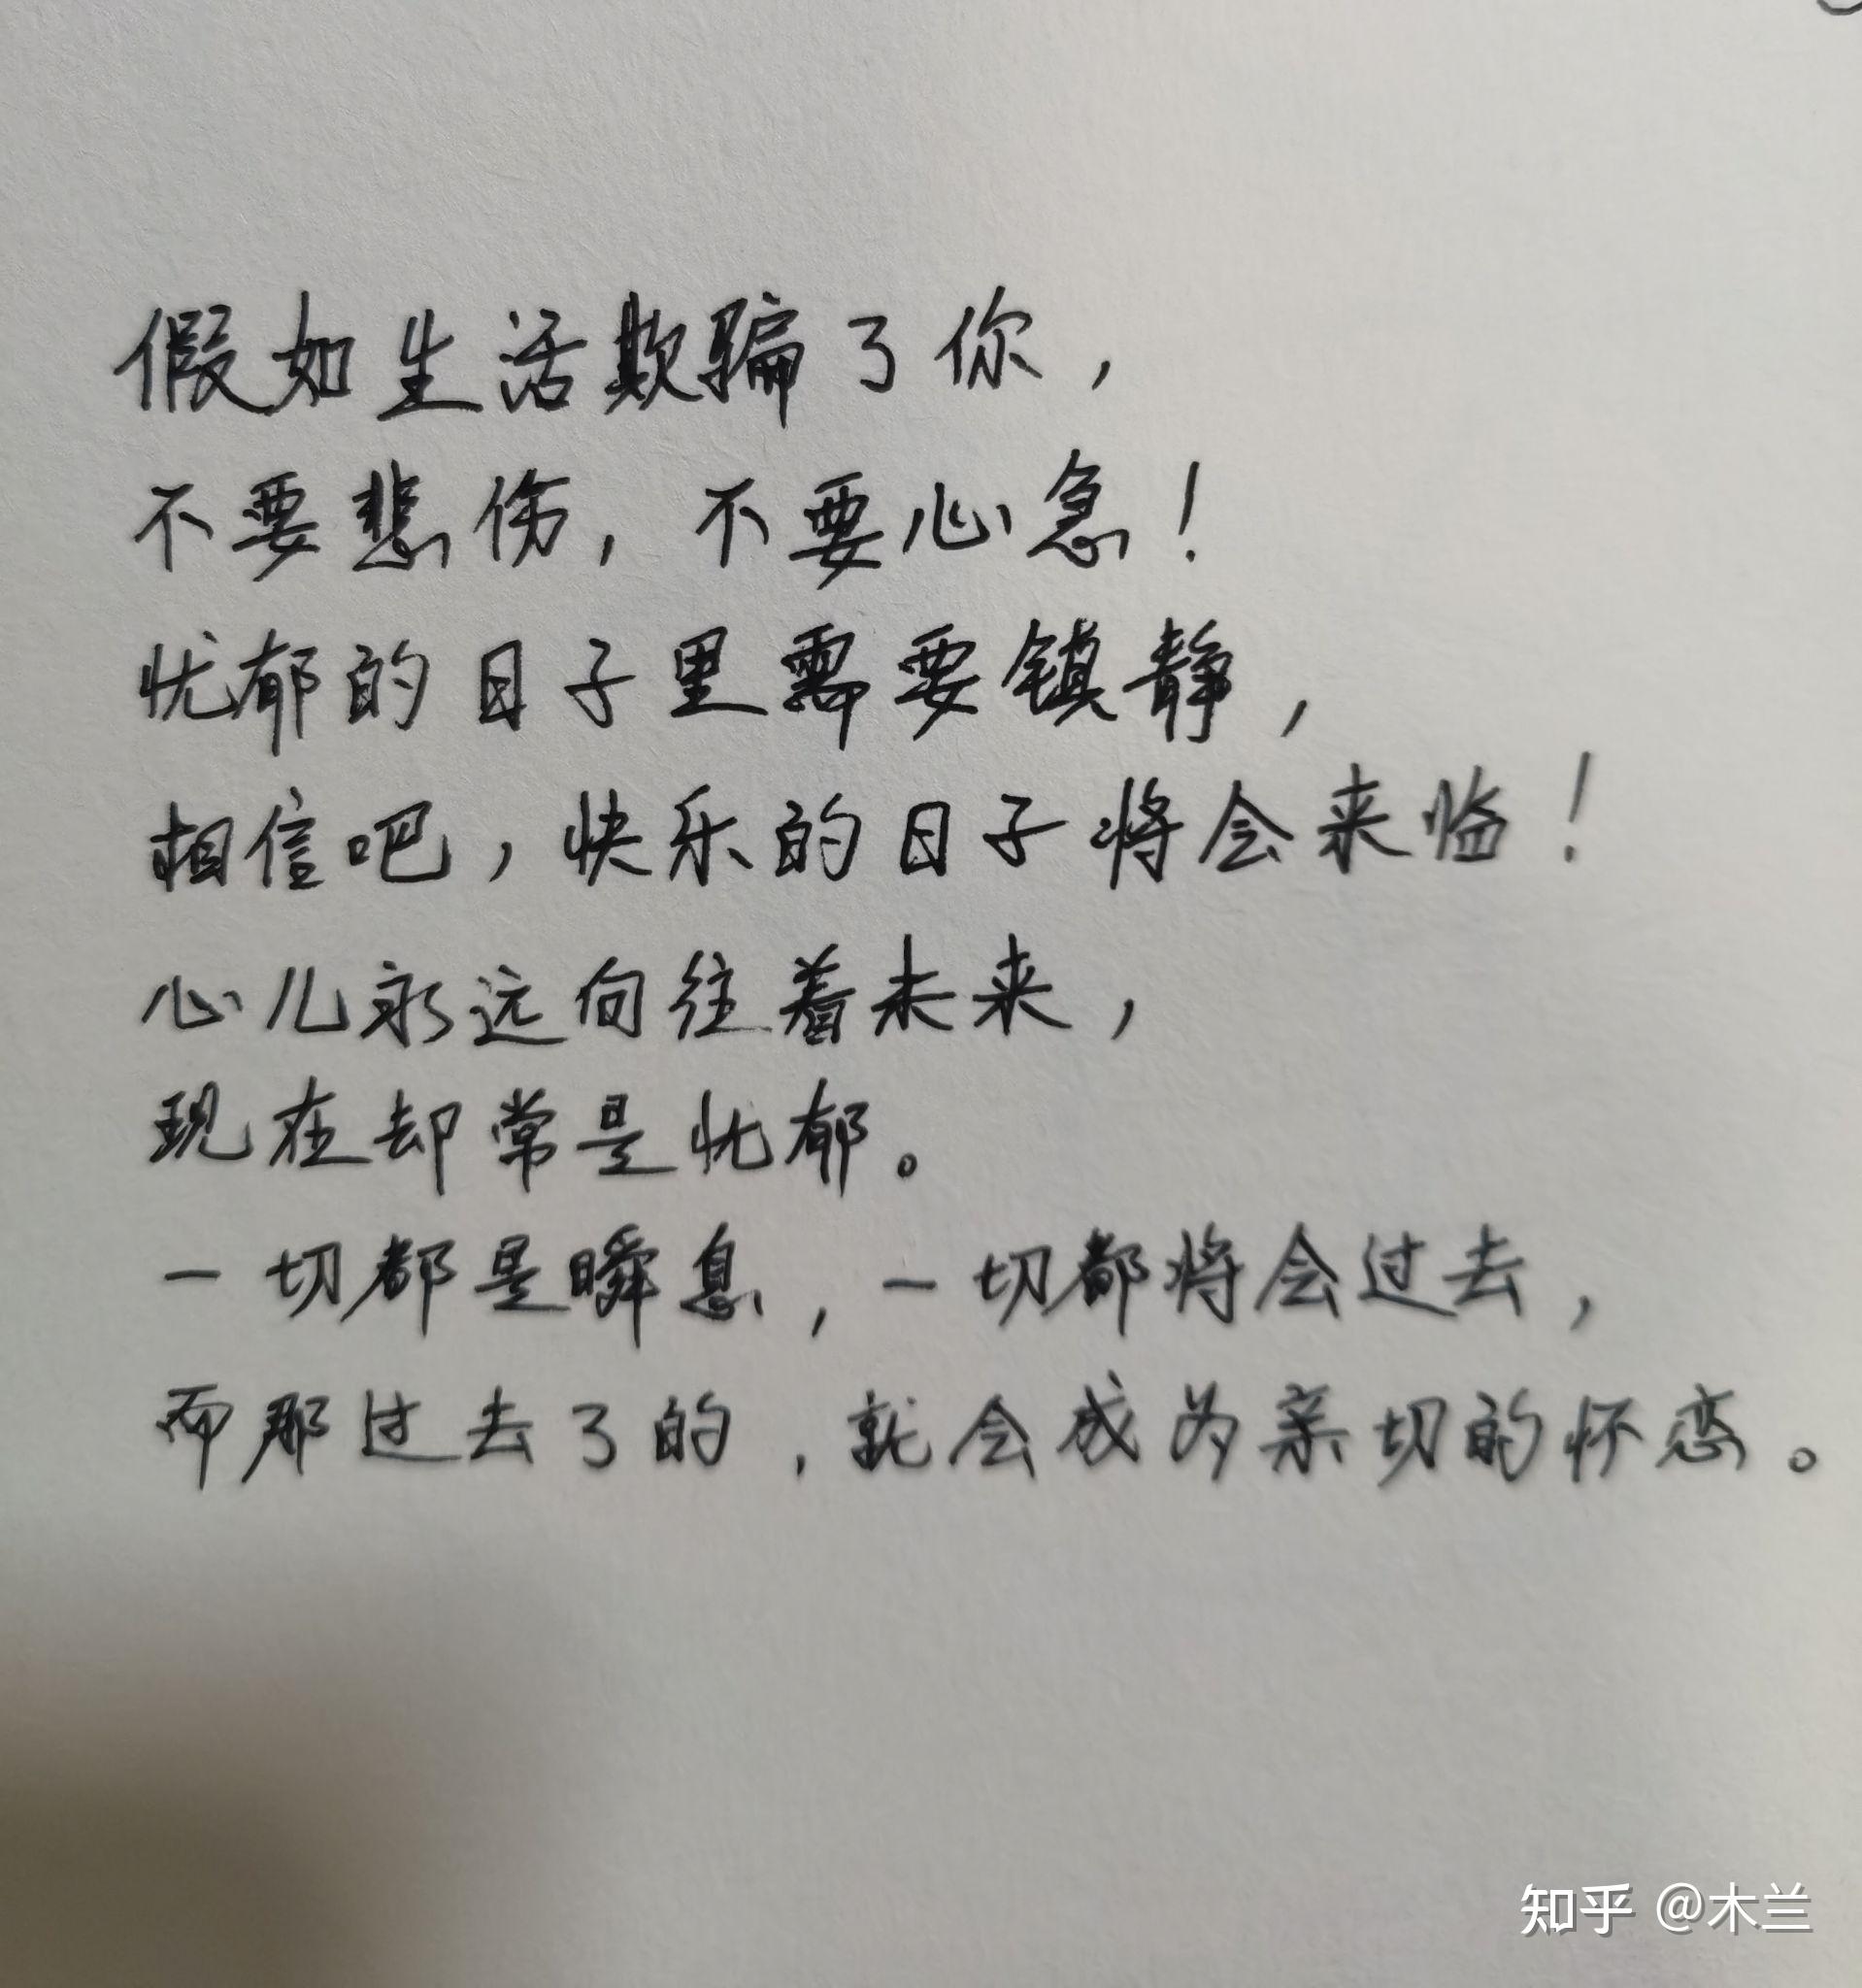 假如生活欺骗了你，
不要悲伤，不要心急！
忧郁的日子里需要镇静，
相信吧，快乐的日子将会来临！
心儿永远向往着未来，
现在却常是忧郁。
一切都是瞬息，一切都将会过去，
而那过去了的，就会成为亲切的怀恋。
知乎 @木兰